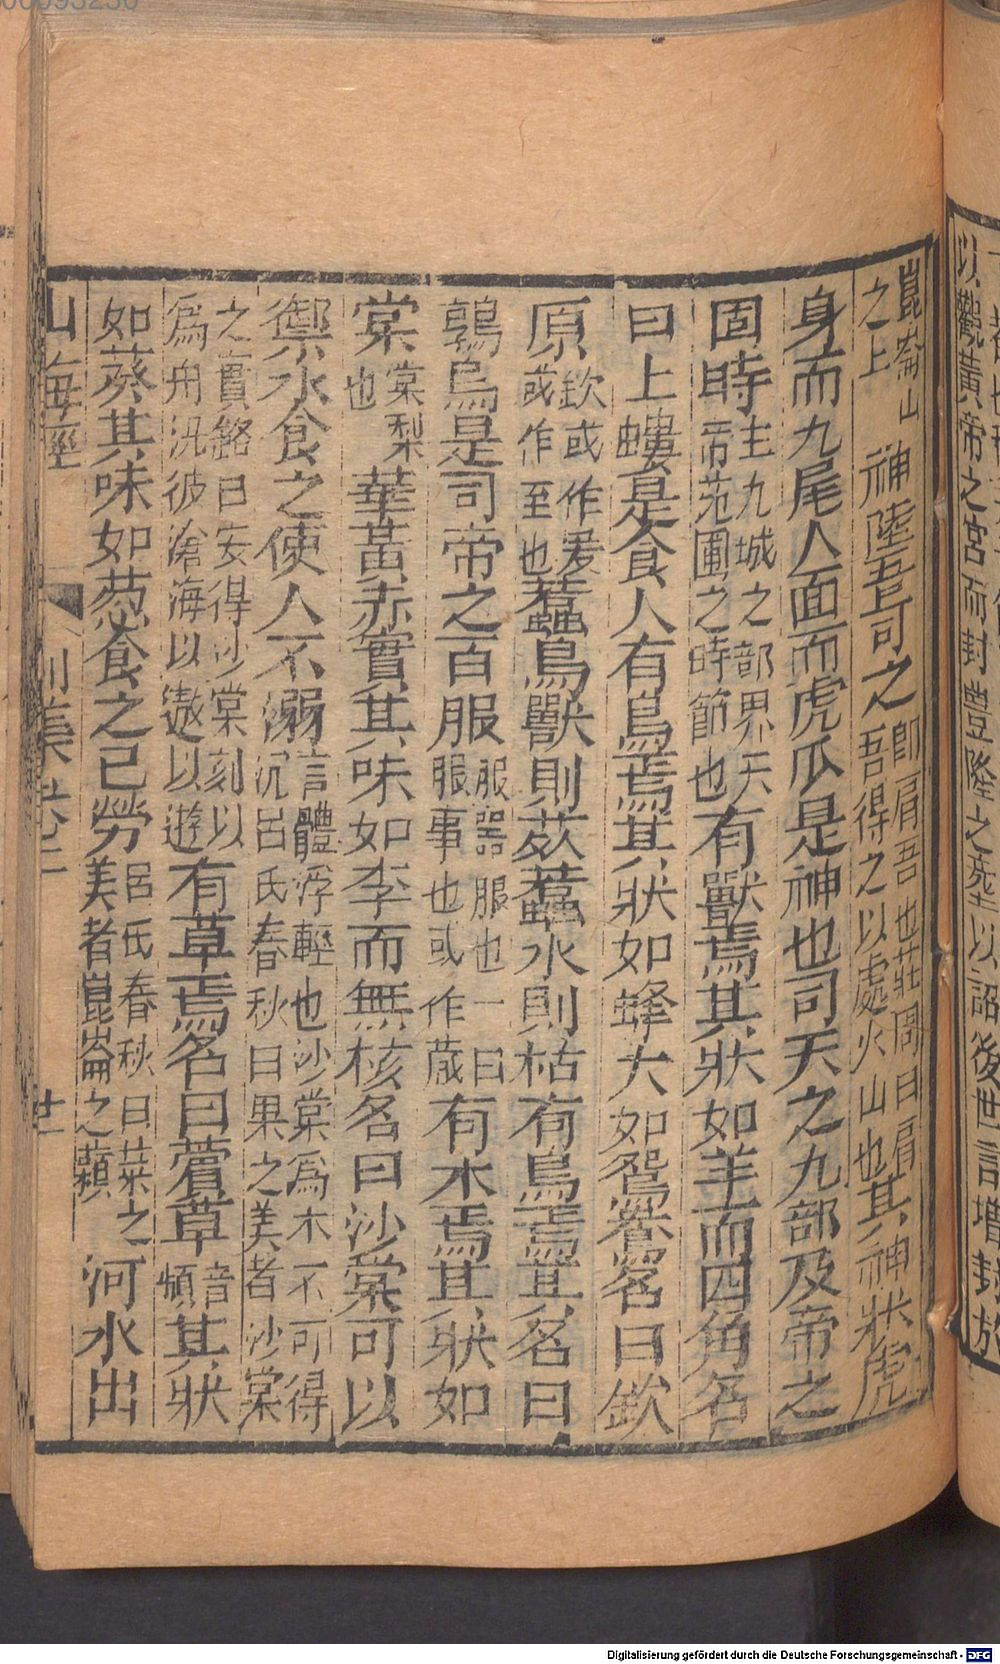 以觀黃帝之宮而封豐隆之葬以詔後世言增封於
崑崙山之上神陸吾司之卽肩吾也莊周曰肩吾得之以處大山也其神狀虎
身而九尾人面而虎爪是神也司天之九部及帝之
囿時主九域之部界天帝苑圃之時節也有獸焉其狀如羊而四角名
曰土螻是食人有鳥焉其狀如蜂大如鴛鴦名曰欽
原欽或作爰或作至也蠚鳥獸則死蠚木則枯有鳥焉其名曰
鶉鳥是司帝之百服服器服也一曰服事也或作藏有木焉其狀如
棠棠梨也華黃赤實其味如李而無核名曰沙棠可以
禦水食之使人不溺言體浮輕也沙棠爲木不可得沉呂氏春秋曰果之美者沙棠
之實銘曰安得沙棠刻以爲舟汎彼滄海以遨以遊有草焉名曰薲草音頻其狀
如葵其味如葱食之已勞呂氏春秋曰菜之美者崑崙之蘋河水出
山海經 卷二 廿一
Digitalisierung gefördert durch die Deutsche Forschungsgemeinschaft - DFG